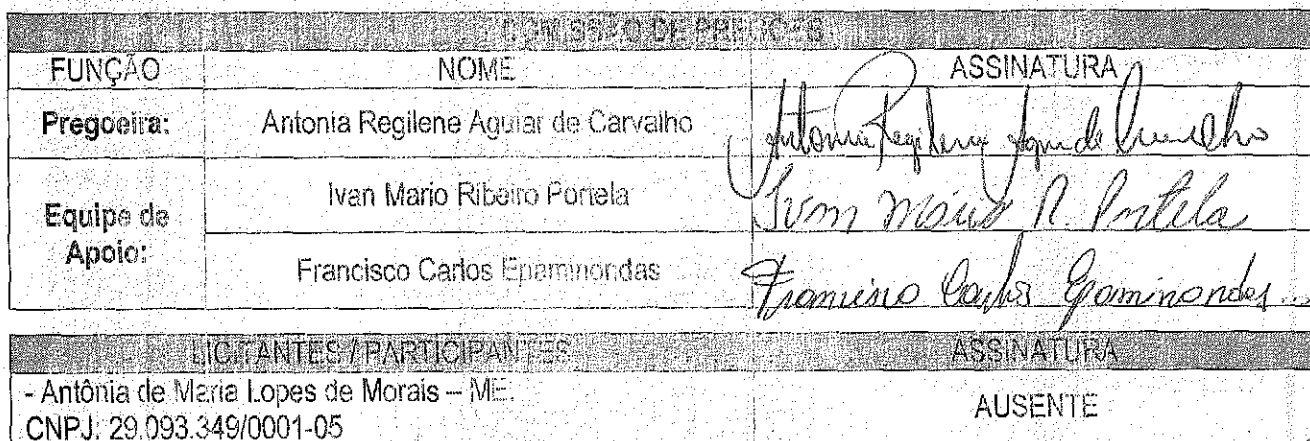 COMISSÃO DE PREGÕES
FUNÇÃO NOME ASSINATURA
Pregoeira: Antonia Regilene Aguiar de Carvalho Antonia Regilene Aguiar de Carvalho
Equipe de Apoio: Ivan Mario Ribeiro Portela Ivan Mário R. Portela
Francisco Carlos Epaminondas Francisco Carlos Epaminondas
LICITANTES / PARTICIPANTES ASSINATURA
- Antônia de Maria Lopes de Morais – ME.
CNPJ: 29.093.349/0001-05 AUSENTE